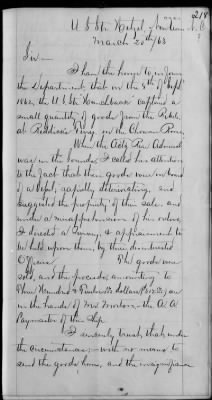 218
U S Str Hetzel Newbern N. C
March 20th /63
Sir
I have the honor to inform
the Department, that on the 8th of Sept
1862, the U. S. Str. Hunchback captured a
small quantity of goods from the Rebels,
at Reddick's Ferry, on the Chowan River,
When the Actg Rear Admiral
was in the Sounds, I called his attention
to the fact that these goods were on board
of a Vessel, rapidly deteriorating, and
suggested the propriety of their sale, and
under a misapprehension of his orders,
I directed a Survey & appraisement to
be held upon them, by three disinterested
Officers. The goods were
sold, and the proceeds amounting to
Three Hundred &
in
the hands of Mr Morton, the A. A
Paymaster of this Ship.
I sincerely trust, that under
the circumstances, with no means to
send the goods home, and the insignificance